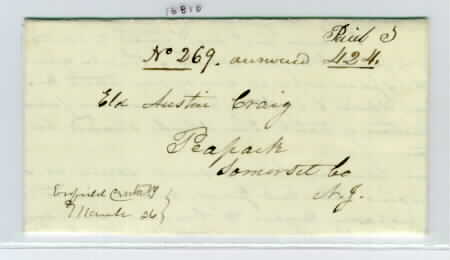 16810
Paid 5
No 269. answered 424.
Eld Austin Craig
Peapack
Somerset Co
N. J.
Enfield
March 26